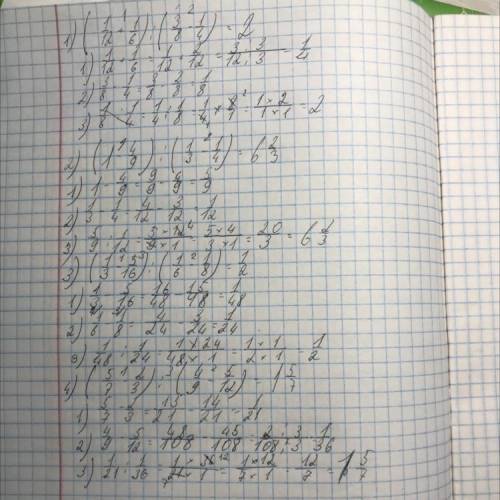 1) (1/12 + 1/6) : (3/8 - 1/4) = 2
1) 1/12 + 1/6 = 1/12 + 2/12 = 3 : 3/12 : 3 = 1/4
2) 3/8 - 1/4 = 3/8 - 2/8 = 1/8
3) 1/4 : 1/8 = 1/4 × 8/1 = 1 × 2/1 × 1 = 2
2) (1 - 4/9) : (1/3 - 1/4) = 6 2/3
1) 1 - 4/9 = 9/9 - 4/9 = 5/9
2) 1/3 - 1/4 = 4/12 - 3/12 = 1/12
3) 5/9 : 1/12 = 5 × 12/9 × 1 = 5 × 4/3 × 1 = 20/3 = 6 2/3
3) (1/3 - 5/16) : (1/6 - 1/8) = 1/2
1) 1/3 - 5/16 = 16/48 - 15/48 = 1/48
2) 1/6 - 1/8 = 4/24 - 3/24 = 1/24
3) 1/48 : 1/24 = 1 × 24/48 × 1 = 1 × 1/2 × 1 = 1/2
4) (5/7 - 2/3) : (4/9 - 5/12) = 1 5/7
1) 5/7 - 2/3 = 15/21 - 14/21 = 1/21
2) 4/9 - 5/12 = 48/108 - 45/108 = 3/108 : 3 = 1/36
3) 1/21 : 1/36 = 1 × 36/21 × 1 = 1 × 12/7 × 1 = 12/7 = 1 5/7